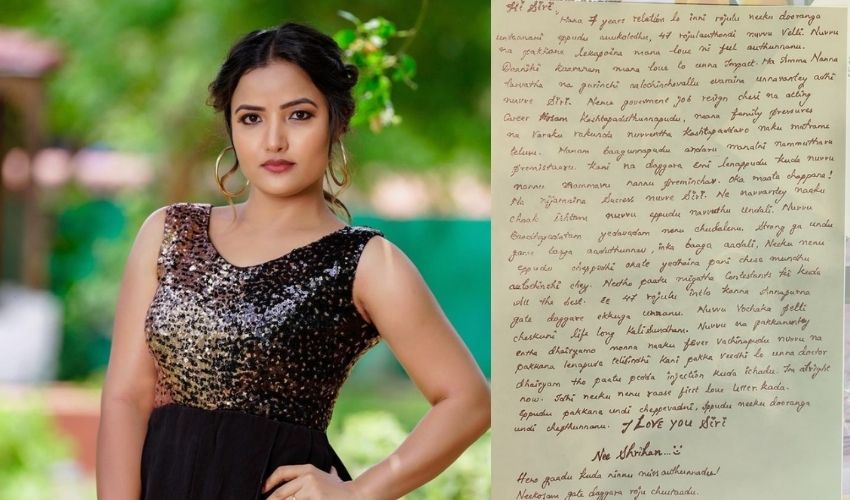 Hi Siri,
Mana 7 years relation lo inni rojulu neeku dooranga
untanani eppudu anukoledhu, 47 rojulauthondi nuvvu Velli. Nuvvu
na pakkana lekapoina mana love ni feel authunnanu.
Deaniki kaaranam mana love lo unna impact. Ma Amma Nanna
tarvatha na gurinchi aalochinchevallu evaraina unnaarantey adhi
nuvve Siri. Nenu government job resign chesi na acting
Career kosam kashtapadisthunnapudu, naana family pressures
na varaku rakunda nuvventha kashtapaddavo naku mathrame
telusu. Manam baagunnapudu andaru manalni nammutharu
premistaaru. Kani na daggara emi lenappudu kuda nuvvu
nannu nammavu nannu preminchav. Oka maata cheppana!
Na nijamaina Success nuvve Siri. Ne navvantey naaku
chaak ishtam nuvvu eppudu navvuthu undali. Nuvvu
baadhapadatam yedavadam nenu chudalenu. Strong ga undu
game baaga aaduthunnav, inka baaga aadali, Neeku nenu
Eppudu cheppedhi okate yedhaina pani chese mundhu
aalochinchi chey. Neetho paatu migatha Contestants ki kuda
All the best. Ee 47 rojulu intlo kanna Annapurna
gate daggare ekkuga unnanu. Nuvvu Vochaka pelli
cheskuni life long kalisundham. Nuvvu na pakkanuntey
entha dhairyamo monna naaku fever vachinapudu nuvvu na
pakkana lenapude telisindhi kani pakka veedhi lo unna doctor
dhairyam tho paatu pedda injection kuda ichadu. I'm alright
now. Idhi neeku nenu raase first love letter kada.
Eppudu pakkana undi cheppevadni, ippudu neeku dooranga
undi chepthunnanu. I LOVE YOU Siri
Nee Shrihan...:)
Hero gaadu kuda ninnu miss authunnadu!
Neekosam gate daggara roju chustaadu.